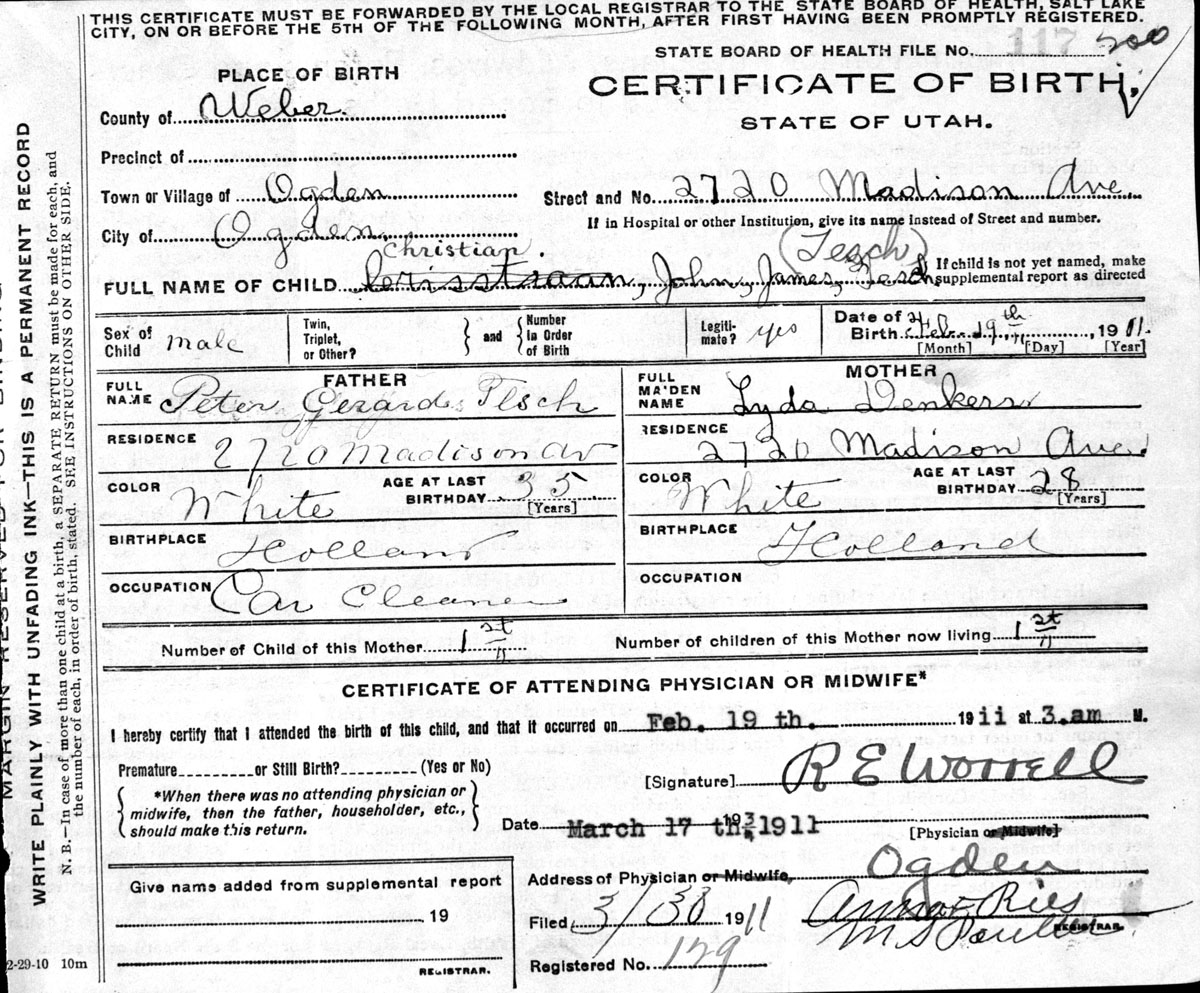 THIS CERTIFICATE MUST BE FORWARDED BY THE LOCAL REGISTRAR TO THE STATE BOARD OF HEALTH, SALT LAKE
CITY, ON OR BEFORE THE 5TH OF THE FOLLOWING MONTH, AFTER FIRST HAVING BEEN PROMPTLY REGISTERED.
STATE BOARD OF HEALTH FILE No. 117 200
PLACE OF BIRTH
CERTIFICATE OF BIRTH,
STATE OF UTAH.
County of Weber.
Precinct of
Town or Village of Ogden
Street and No. 2720 Madison Ave
City of Ogden
If in Hospital or other Institution, give its name instead of Street and number.
Christian (Tesch)
FULL NAME OF CHILD John, James, Tesch
If child is not yet named, make
supplemental report as directed
Sex of Child male
Twin, Triplet, or Other? and Number in Order of Birth
Legiti-mate? yes
Date of Birth Feb. 19th 1911.
[Month] [Day] [Year]
FATHER
FULL NAME Peter Gerard
RESIDENCE 2720 Madison av
COLOR White AGE AT LAST BIRTHDAY 35
[Years]
BIRTHPLACE Holland
OCCUPATION Car Cleaner
MOTHER
FULL MAIDEN NAME Lyda Denkers
RESIDENCE 2720 Madison Ave.
COLOR White AGE AT LAST BIRTHDAY 28
[Years]
BIRTHPLACE Holland
OCCUPATION
Number of Child of this Mother 1st Number of children of this Mother now living 1st
CERTIFICATE OF ATTENDING PHYSICIAN OR MIDWIFE*
I hereby certify that I attended the birth of this child, and that it occurred on Feb. 19 th. 1911 at 3.am M.
Premature or Still Birth? (Yes or No)
[Signature] R E Worrell
*When there was no attending physician or
midwife, then the father, householder, etc.,
should make this return.
Date March 17 th 1911
[Physician or Midwife]
Address of Physician or Midwife, Ogden
Give name added from supplemental report
19
REGISTRAR.
Filed 3/30 1911
REGISTRAR.
Registered No. 129
2-29-10 10m
MARGIN RESERVED FOR BINDING
WRITE PLAINLY WITH UNFADING INK—THIS IS A PERMANENT RECORD
N. B.—In case of more than one child at a birth, a SEPARATE RETURN must be made for each, and
the number of each, in order of birth, stated. SEE INSTRUCTIONS ON OTHER SIDE.